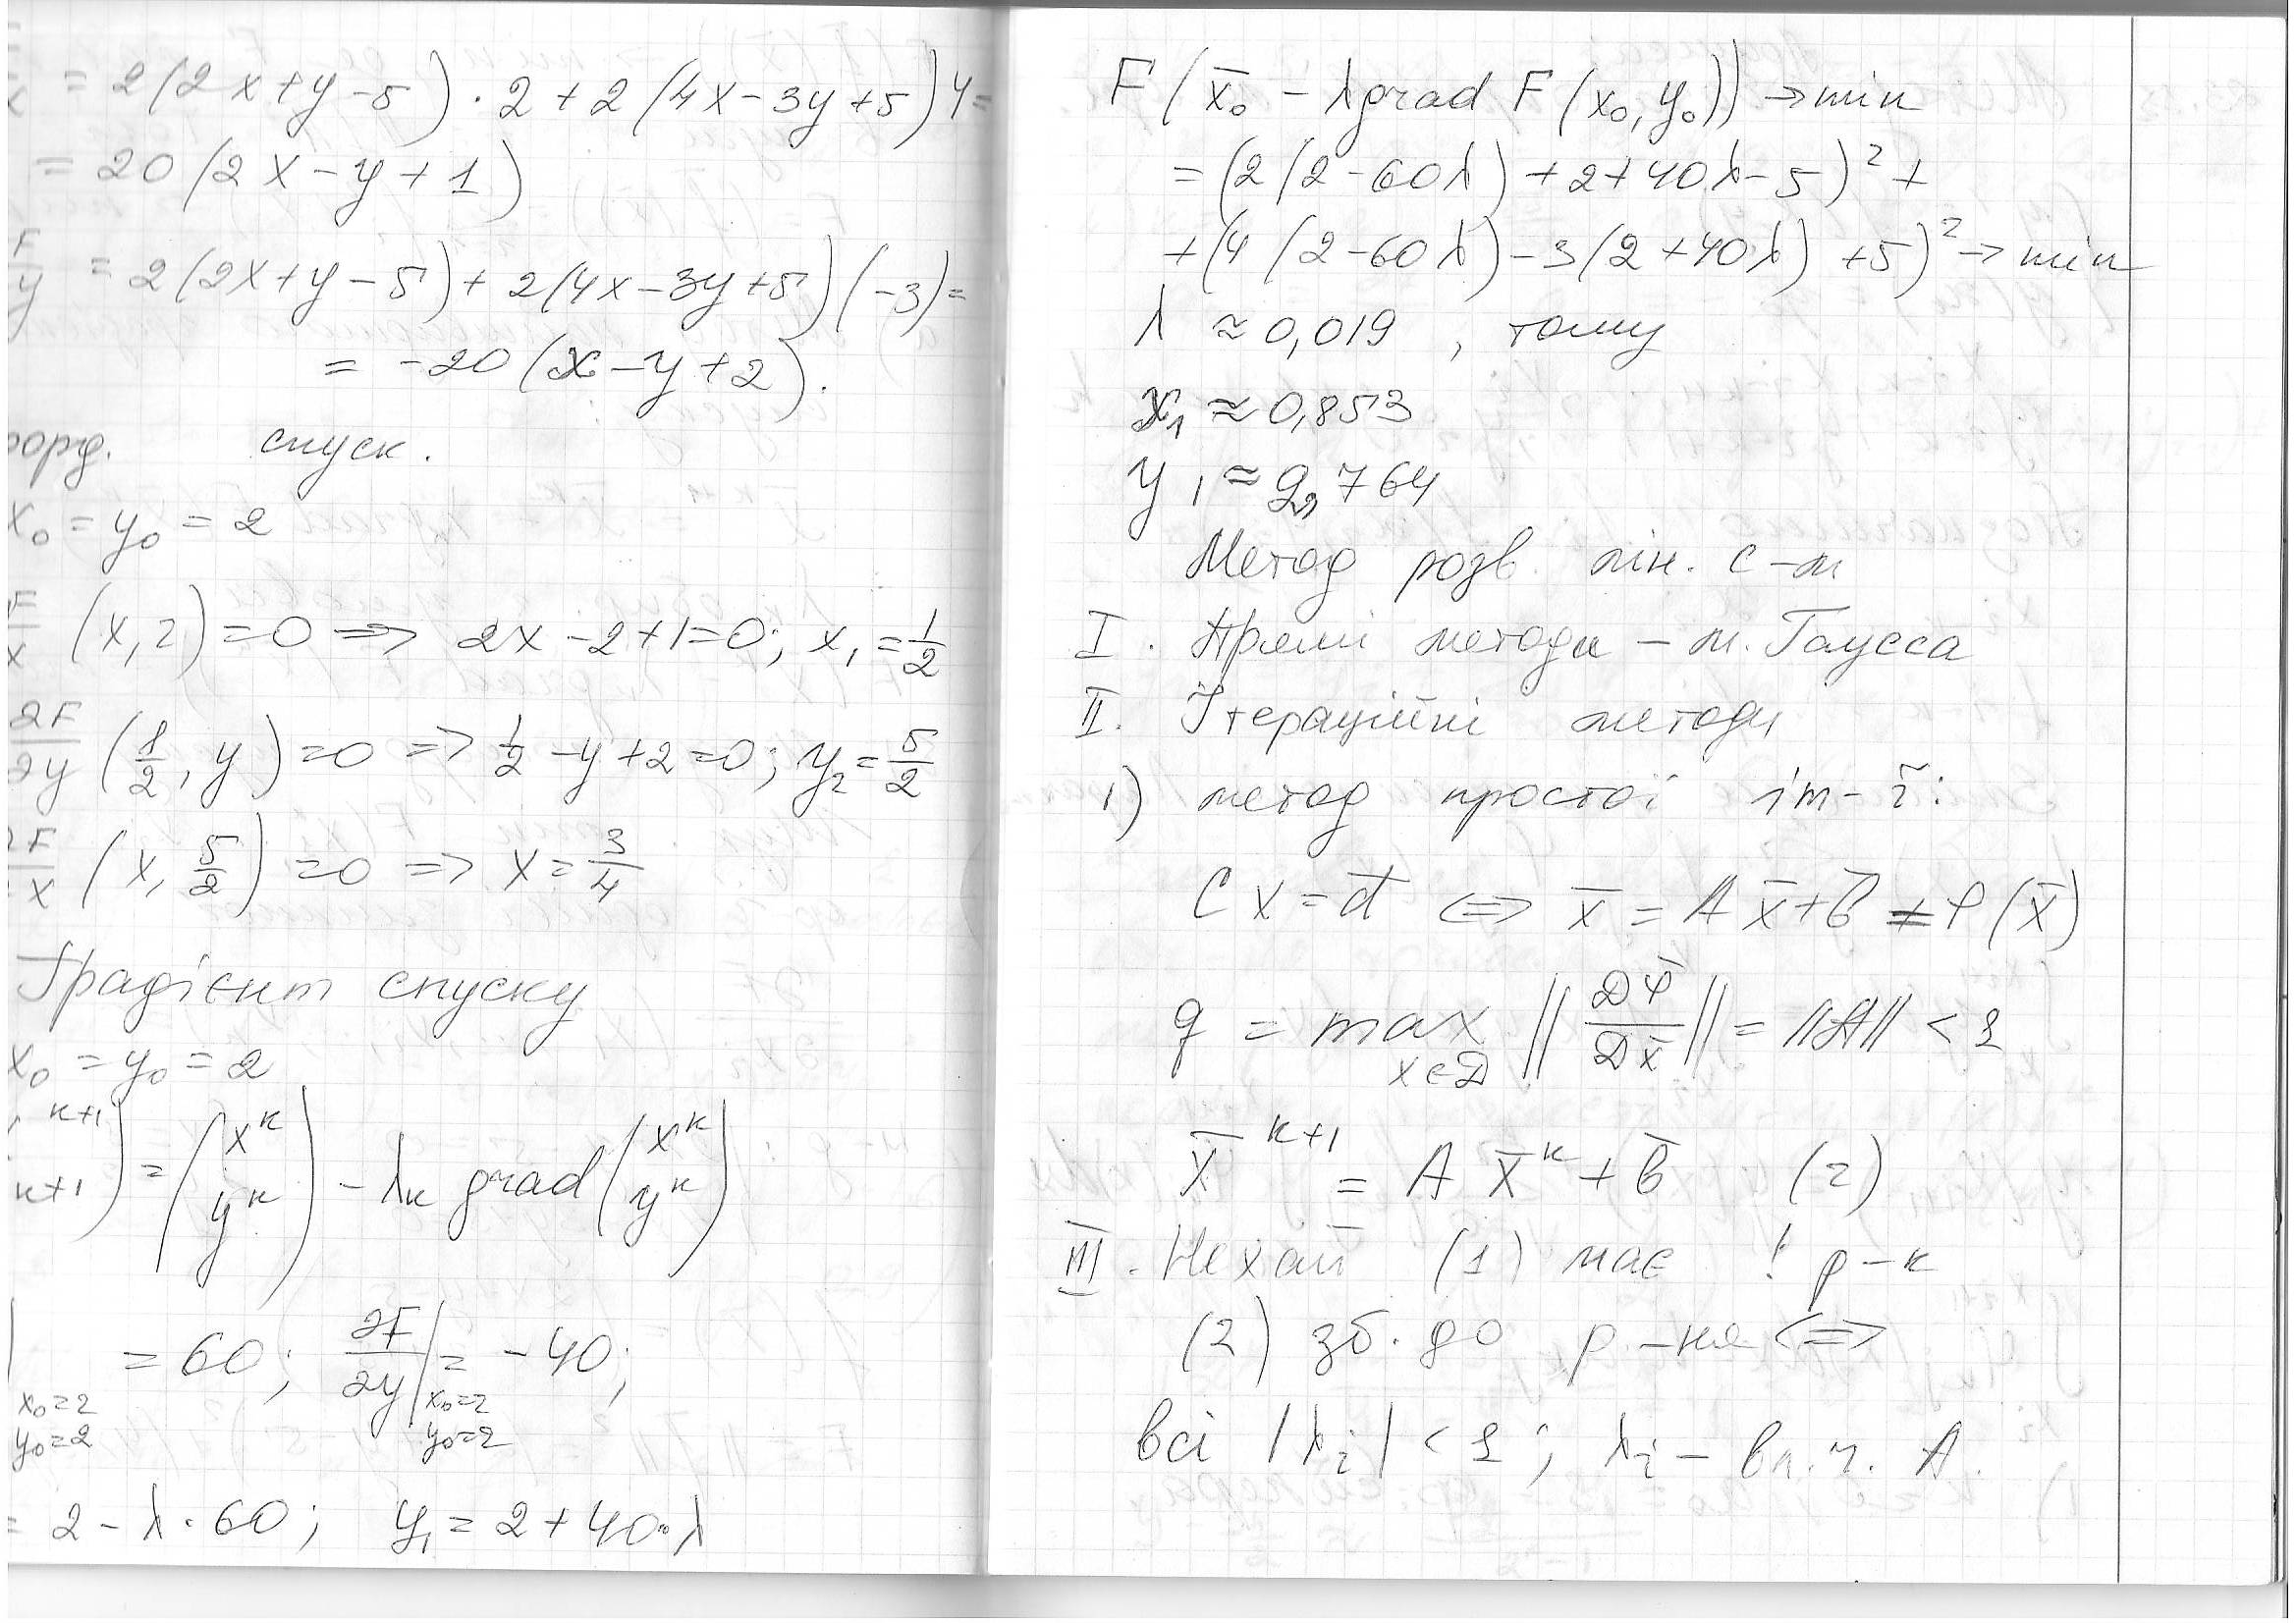 = 2(2x+y-5)·2+2(4x-3y+5)4=
= 20(2x-y+1)
= 2(2x+y-5)+2(4x-3y+5)(-3)=
= -20(x-y+2).
орд. спуск.
x₀ = y₀ = 2
(x,2)=0 => 2x-2+1=0; x₁=1/2
∂F/∂y (1/2, y)=0 => 1/2-y+2=0; y₂=5/2
∂F/∂x (x, 5/2)=0 => x=3/4
Градієнт спуску
x₀ = y₀ = 2
(x^{k+1} y^{k+1}) = (x^k y^k) - λ_k grad (x^k y^k)
| x₀=2 y₀=2 = 60; ∂F/∂y | x₀=2 y₀=2 = -40;
= 2-λ·60; y₁=2+40·λ
F(x̄₀ - λ grad F(x₀,y₀)) → min
= (2(2-60λ)+2+40λ-5)² +
+(4(2-60λ)-3(2+40λ)+5)² → min
λ ≈ 0,019, тому
x₁ ≈ 0,853
y₁ ≈ 2,764
Метод розв. лін. с-м
I. Прямі методи - м. Гаусса
II. Ітераційні методи
1) метод простої іт-ї:
Cx = d̄ <=> x̄ = Ax̄+b̄ = φ(x̄)
q = max_{x∈D} ||Dφ̄/Dx̄|| = ||A|| < 1
x̄^{k+1} = A x̄^k + b̄ (2)
III. Нехай (1) має ! р-к
(2) зб. до р-ня <=>
всі |λ_i| < 1; λ_i - вл. ч. A.